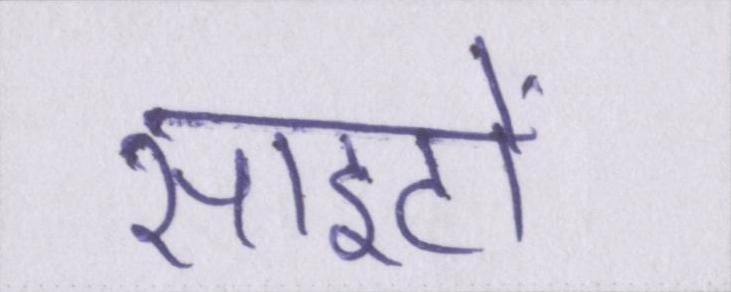 साइटों